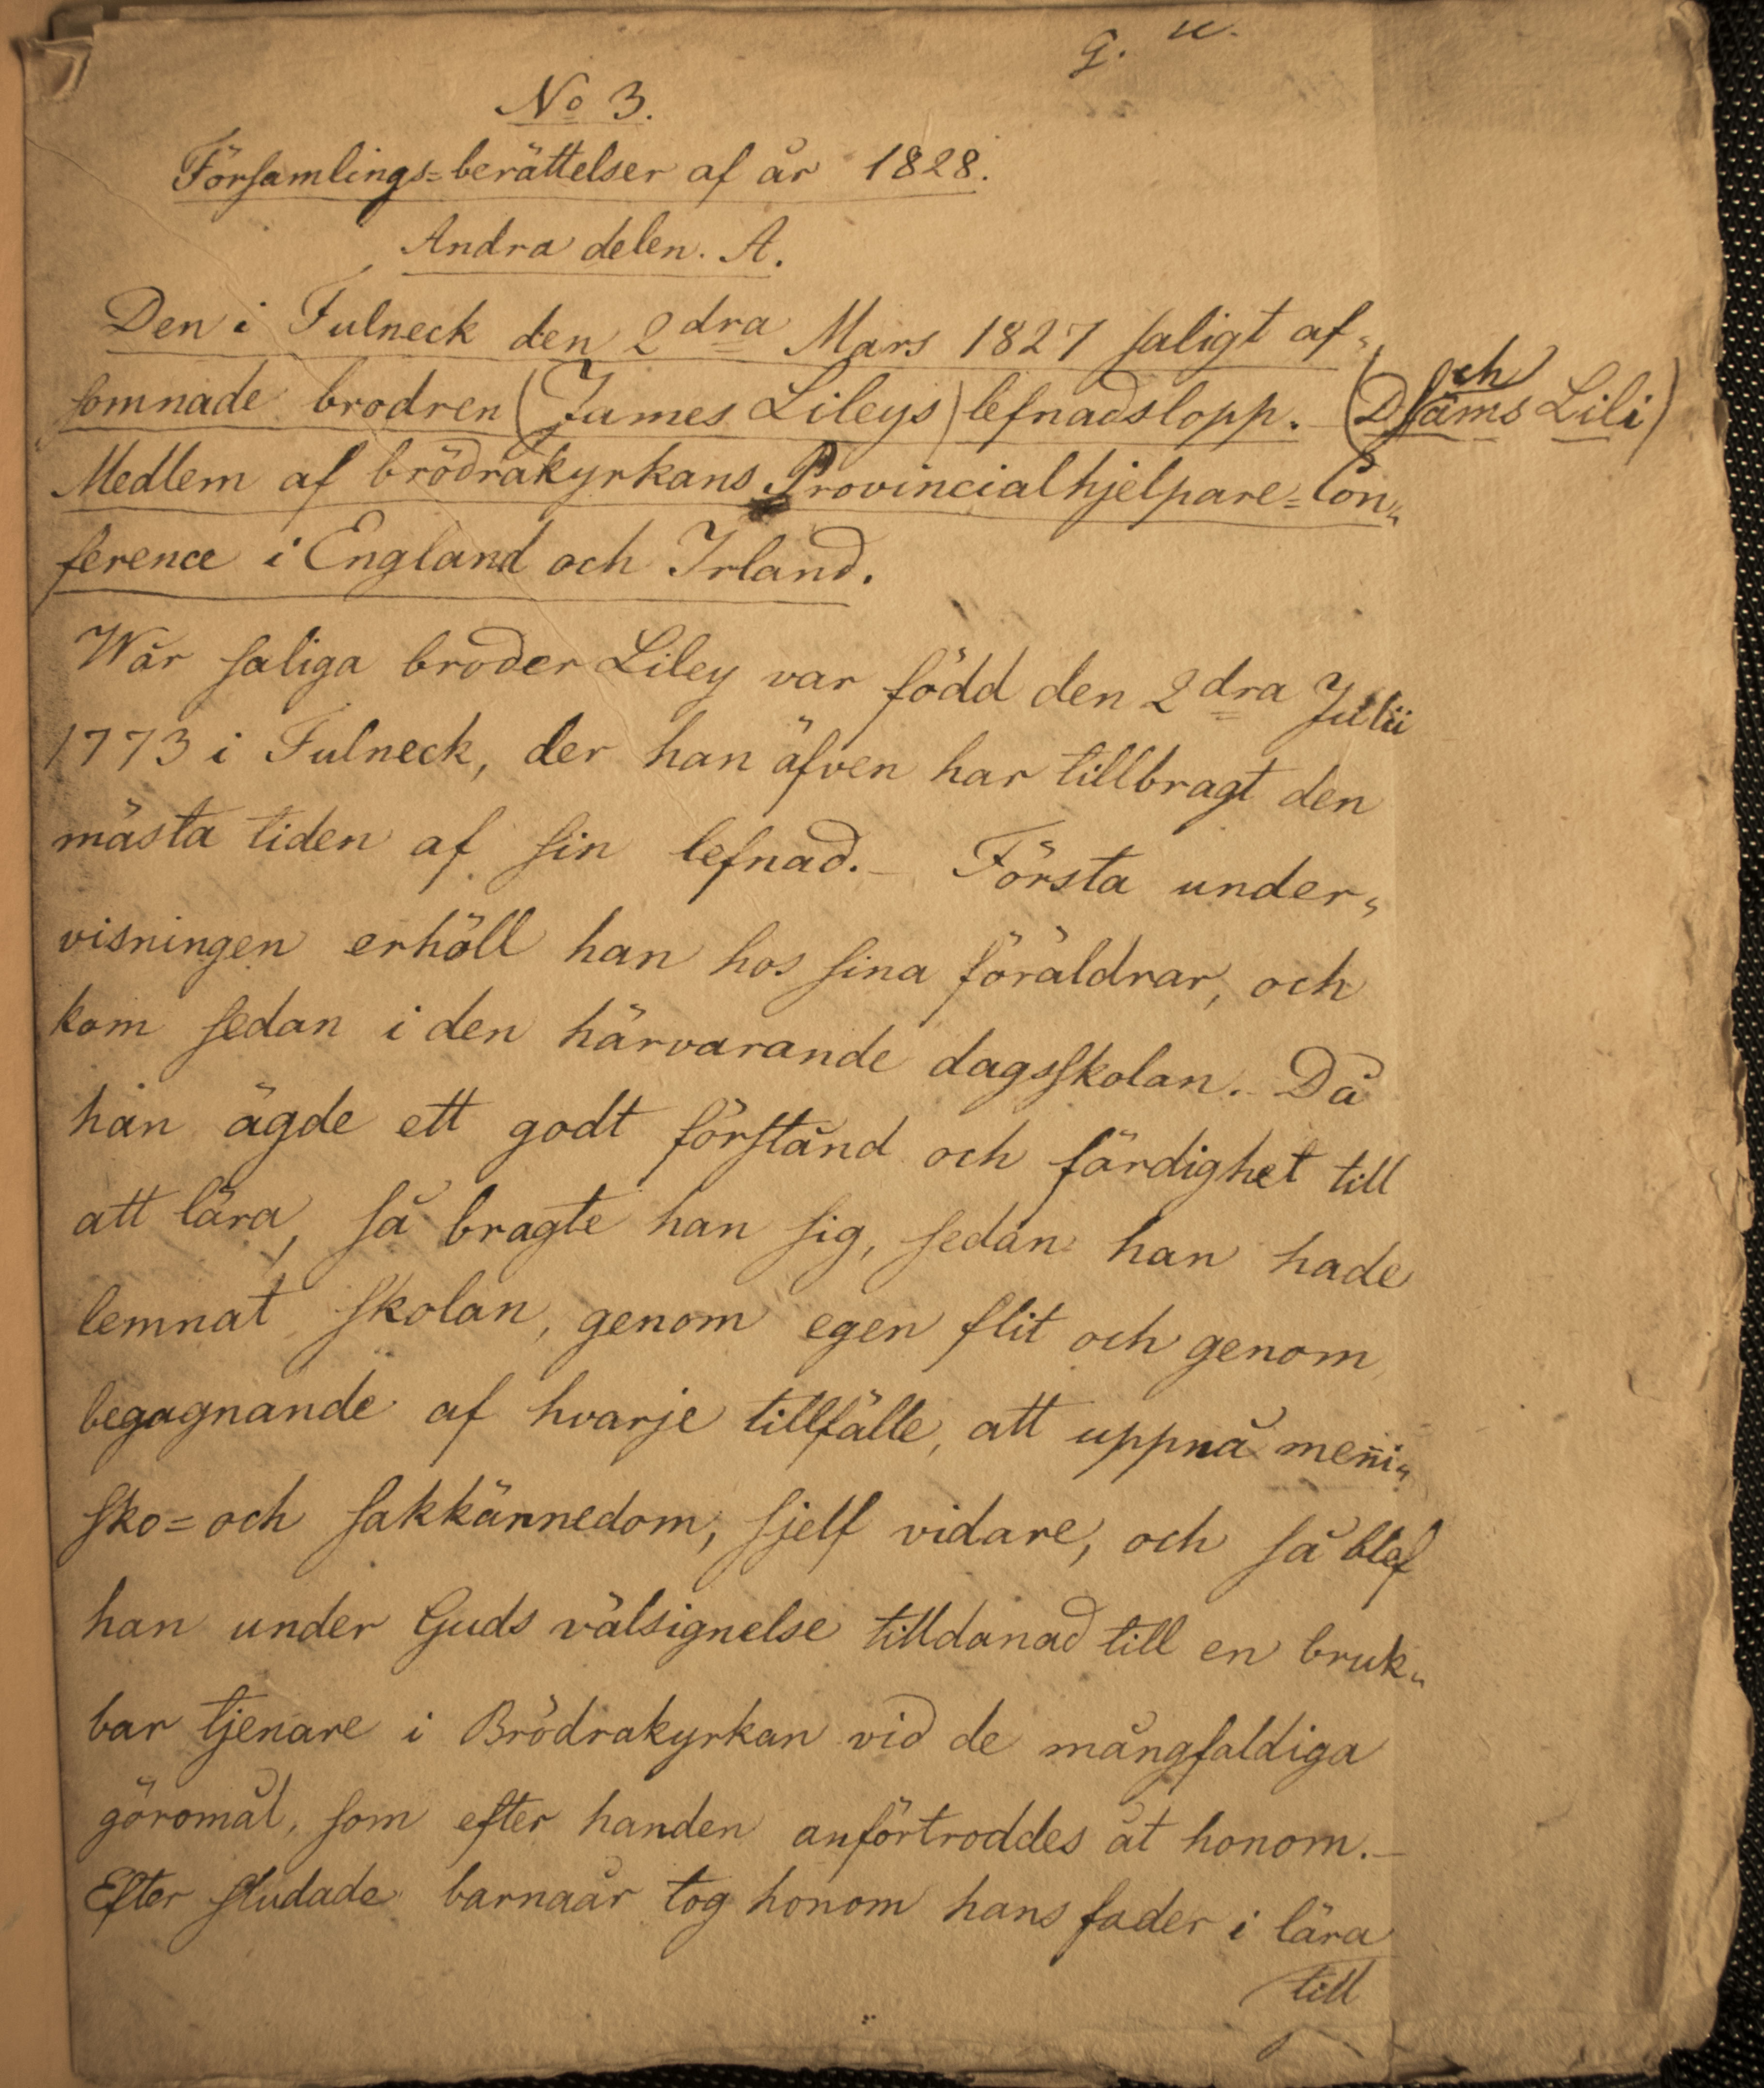 G. u.
No 3.
Församlings=berättelser af år 1828.
Andra delen. A.
Den i Fulneck den 2dra Mars 1827 saligt af„
somnade brodren (James Lileys) lefnadslopp. (Dschäms Lili)
Medlem af brödrakyrkans Provincialhjelpare=Con„
ference i England och Irland.
Wår saliga broder Liley var född den 2dra Julii
1773 i Fulneck, der han äfven har tillbragt den
mästa tiden af sin lefnad.— Första under„
visningen erhöll han hos sina föräldrar, och
kom sedan i den härvarande dagsskolan.— Då
han ägde ett godt förstånd och färdighet till
att lära, så bragte han sig, sedan han hade
lemnat skolan, genom egen flit och genom
begagnande af hvarje tillfälle, att uppnå men̄i„
sko= och sakkännedom, sjelf vidare, och så blef
han under Guds välsignelse tilldanad till en bruk„
bar tjenare i Brödrakyrkan vid de mångfaldiga
göromål, som efter handen anförtroddes åt honom.—
Efter slutade barnaår tog honom hans fader i lära
till